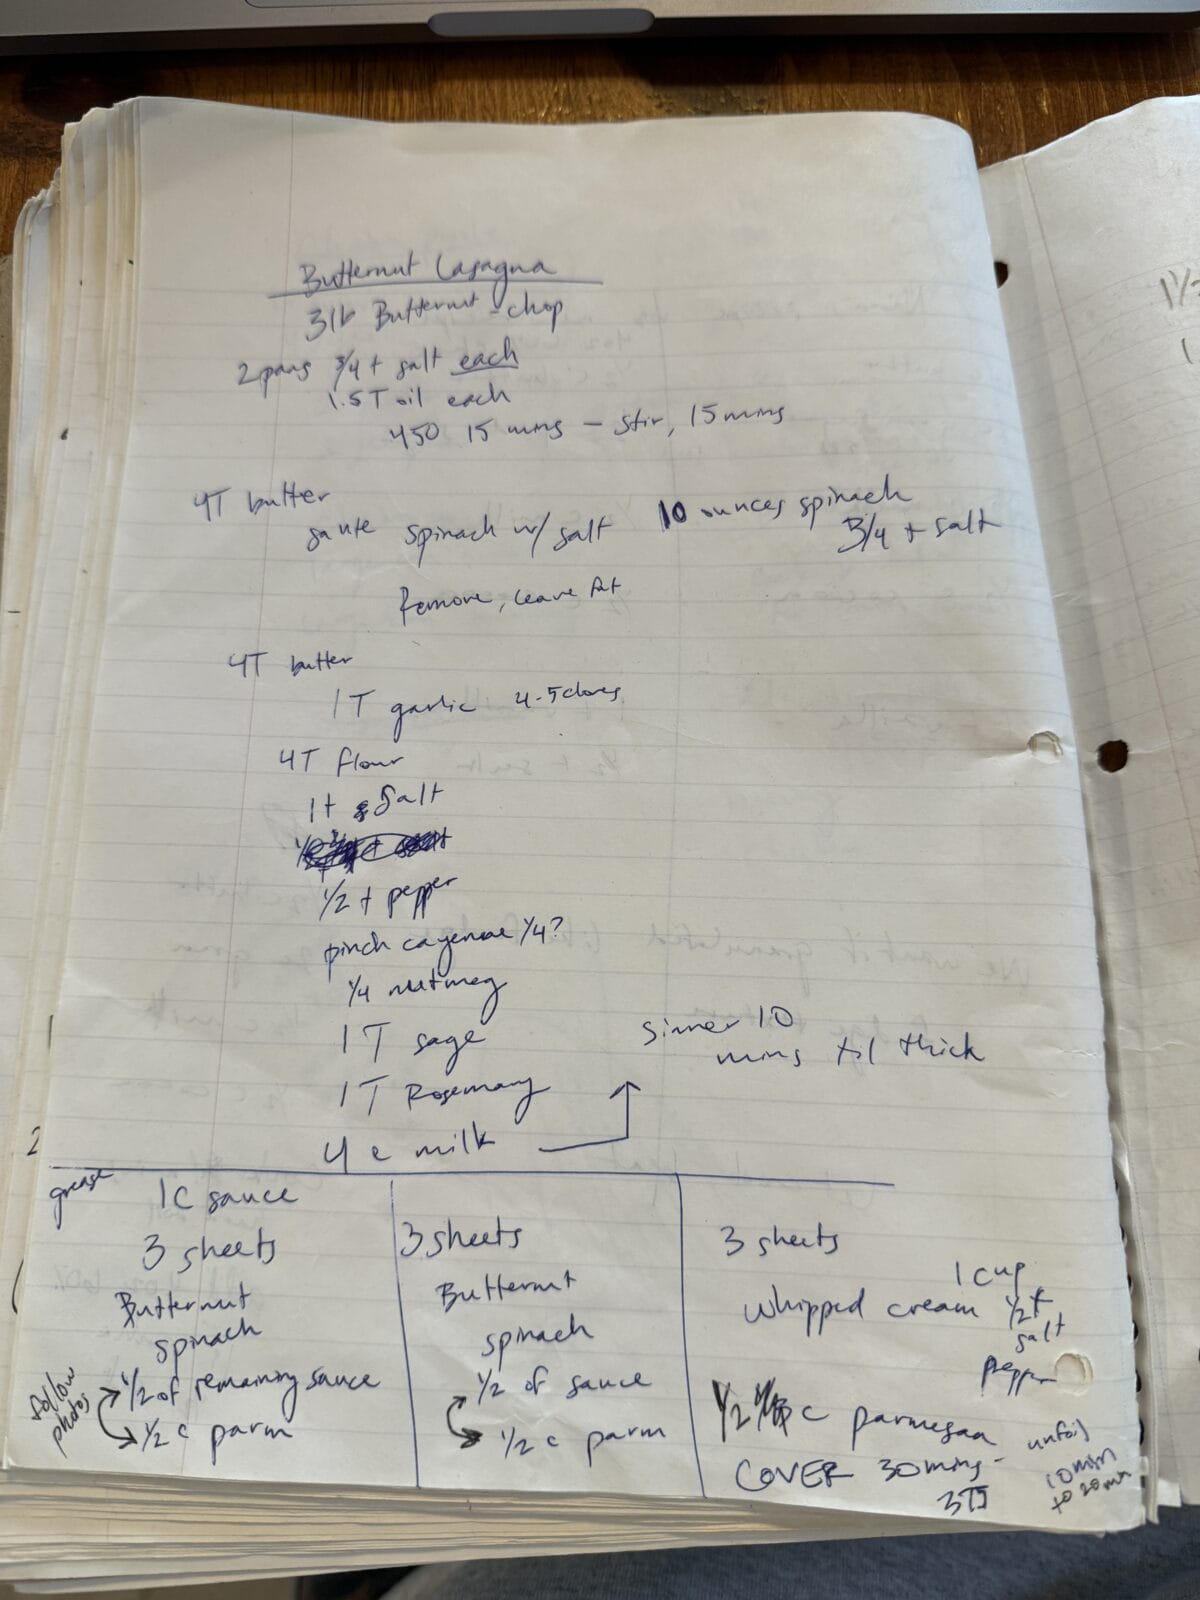 Butternut Lasagna
3lb Butternut - chop
2 pans 3/4 t salt each
1.5 T oil each
450 15 mins - stir, 15 mins
4T butter
saute spinach w/ salt
10 ounces spinach
3/4 t salt
Remove, leave fat
4T butter
1T garlic 4-5 cloves
4T flour
1t salt
1/2 t pepper
pinch cayenne 1/4?
1/4 nutmeg
1T sage
1T Rosemary
4 c milk
simer 10
mins til thick
grease 1C sauce
3 sheets
Butternut
spinach
1/2 of remaining sauce
1/2 c parm
follow
photos
3 sheets
Butternut
spinach
1/2 of sauce
1/2 c parm
3 sheets
1 cup
whipped cream 1/2 t
salt
pepper
1/2 c parmesan
COVER 30 mins -
375
unfoil
10 min
to 20 mn
2